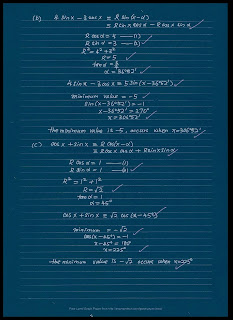 (b) 4 sin x − 3 cos x ≡ R sin (x−α)
≡ R sin x cos α − R cos x sin α
R cos α = 4 —(1)
R sin α = 3 —(2)
R² = 4² + 3²
R = 5
tan α = 3/4
α = 36°52'
4 sin x − 3 cos x ≡ 5 sin (x−36°52')
minimum value = −5
sin (x−36°52') = −1
x−36°52' = 270°
x = 306°52'
the minimum value is −5, occurs when x=306°52'
(c) cos x + sin x ≡ R cos (x−α)
≡ R cos x cos α + R sin x sin α
R cos α = 1 —(1)
R sin α = 1 —(2)
R² = 1² + 1²
R = √2
tan α = 1
α = 45°
cos x + sin x ≡ √2 cos (x−45°)
minimum = −√2
cos (x−45°) = −1
x−45° = 180°
x = 225°
the minimum value is −√2 occurs when x=225°